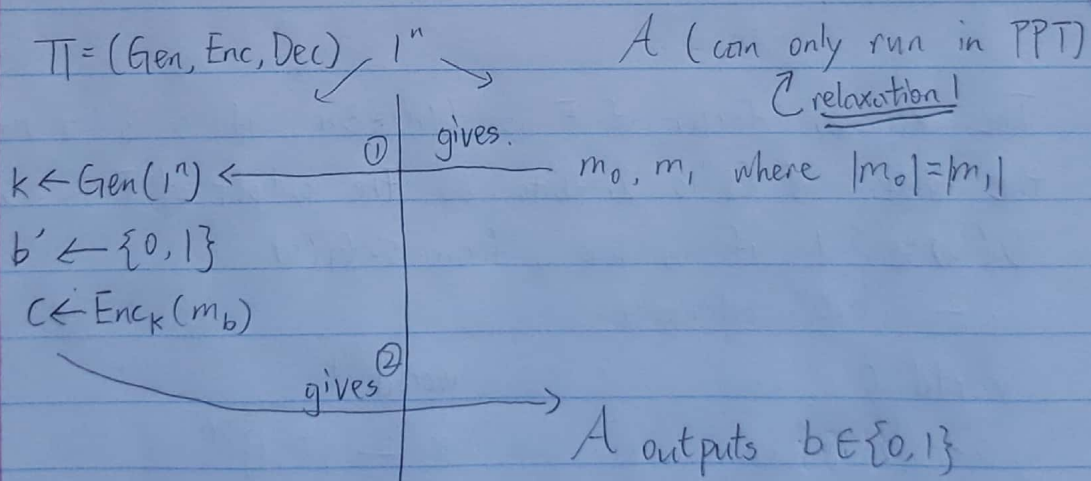 Π = (Gen, Enc, Dec) 1ⁿ A (can only run in PPT)
relaxation!
① gives.
k ← Gen(1ⁿ) m₀, m₁ where |m₀|=|m₁|
b' ← {0,1}
c ← Encₖ(m_b)
gives ②
A outputs b ∈ {0,1}